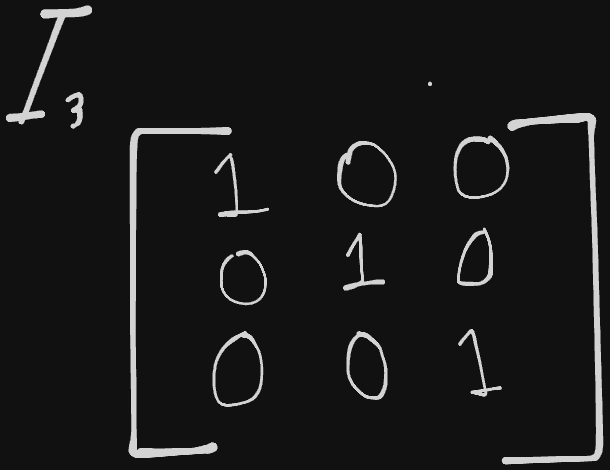 I₃
1 0 0
0 1 0
0 0 1